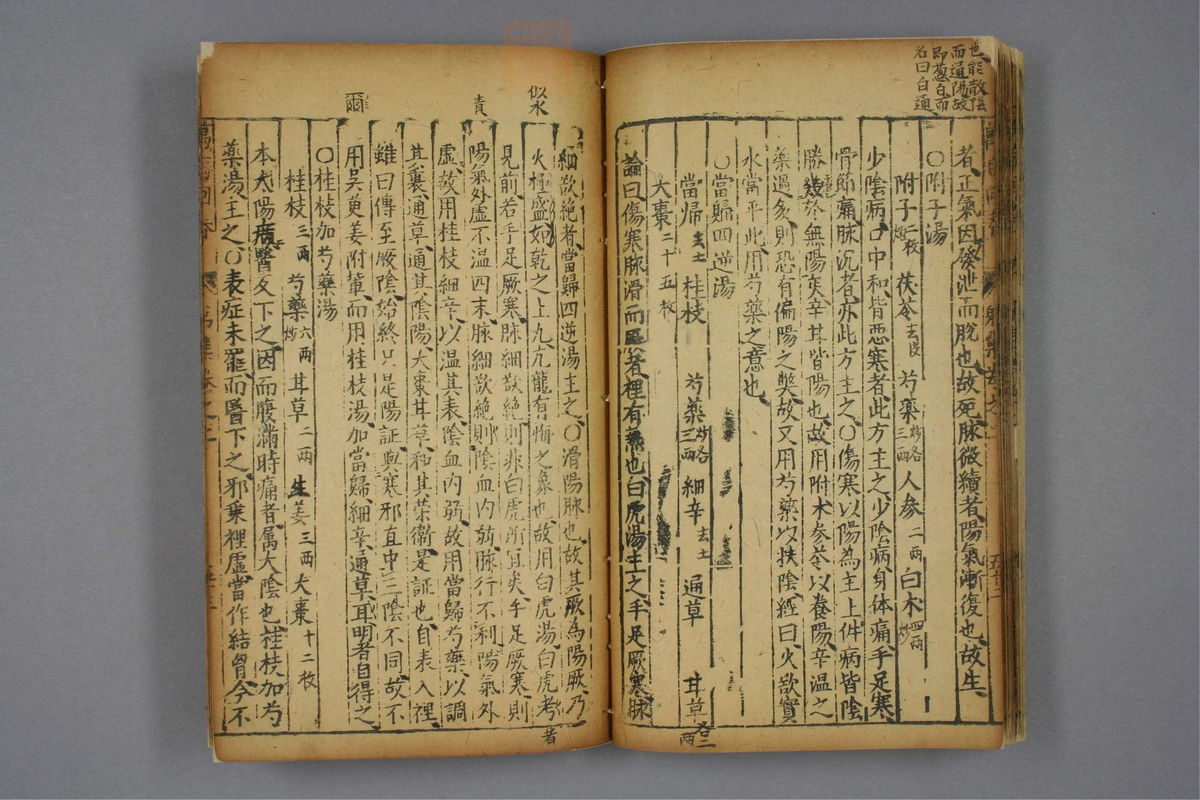 也能散陰
而通陽故
即葱白而
名曰白通
者正氣因發泄而脫也故死脉微續者陽氣漸復也故生
〇附子湯
附子二枚炮 茯苓去皮 芍藥炒各三兩 人參二兩 白木四兩炒
少陰病口中和背惡寒者此方主之少陰病身体痛手足寒
骨節痛脉沉者亦此方主之〇傷寒以陽為主上件病皆陰
勝幾於無陽矣辛甘皆陽也故用附术參苓以養陽辛温之
藥過多則恐有偏陽之獘故又用芍藥以扶陰經曰火欲實
水當平此用芍藥之意也
〇當歸四逆湯
當帰去土 桂枝 芍藥炒各三兩 細辛去土 通草 甘草各二兩
大棗二十五枚
論曰傷寒脉滑而厥者裡有熱也白虎湯主之手足厥寒脉
似水
責
爾
細欲絶者當歸四逆湯主之〇滑陽脉也故其厥為陽厥乃
火極盛如乾之上九亢龍有悔之象也故用白虎湯白虎考
見前若手足厥寒脉細欲絶則非白虎所宜矣手足厥寒則
陽氣外虚不温四末脉細欲絶則陰血内弱脉行不利陽氣外
虚故用桂枝細辛以温其表陰血内弱故用當歸芍藥以調
其裏通草通其陰陽大棗甘草和其榮衛是証也自表入裡
雖曰傳至厥陰始終只是陽証與寒邪直中三陰不同故不
用吳茰姜附輩而用桂枝湯加當歸細辛通草耳明者自得之
〇桂枝加芍藥湯
桂枝三兩 芍藥六兩炒 甘草二兩 生姜三兩 大棗十二枚
本太陽病醫反下之因而腹滿時痛者属大陰也桂枝加芍
藥湯主之〇表症未罷而醫下之邪乗裡虚當作結胷今不
者